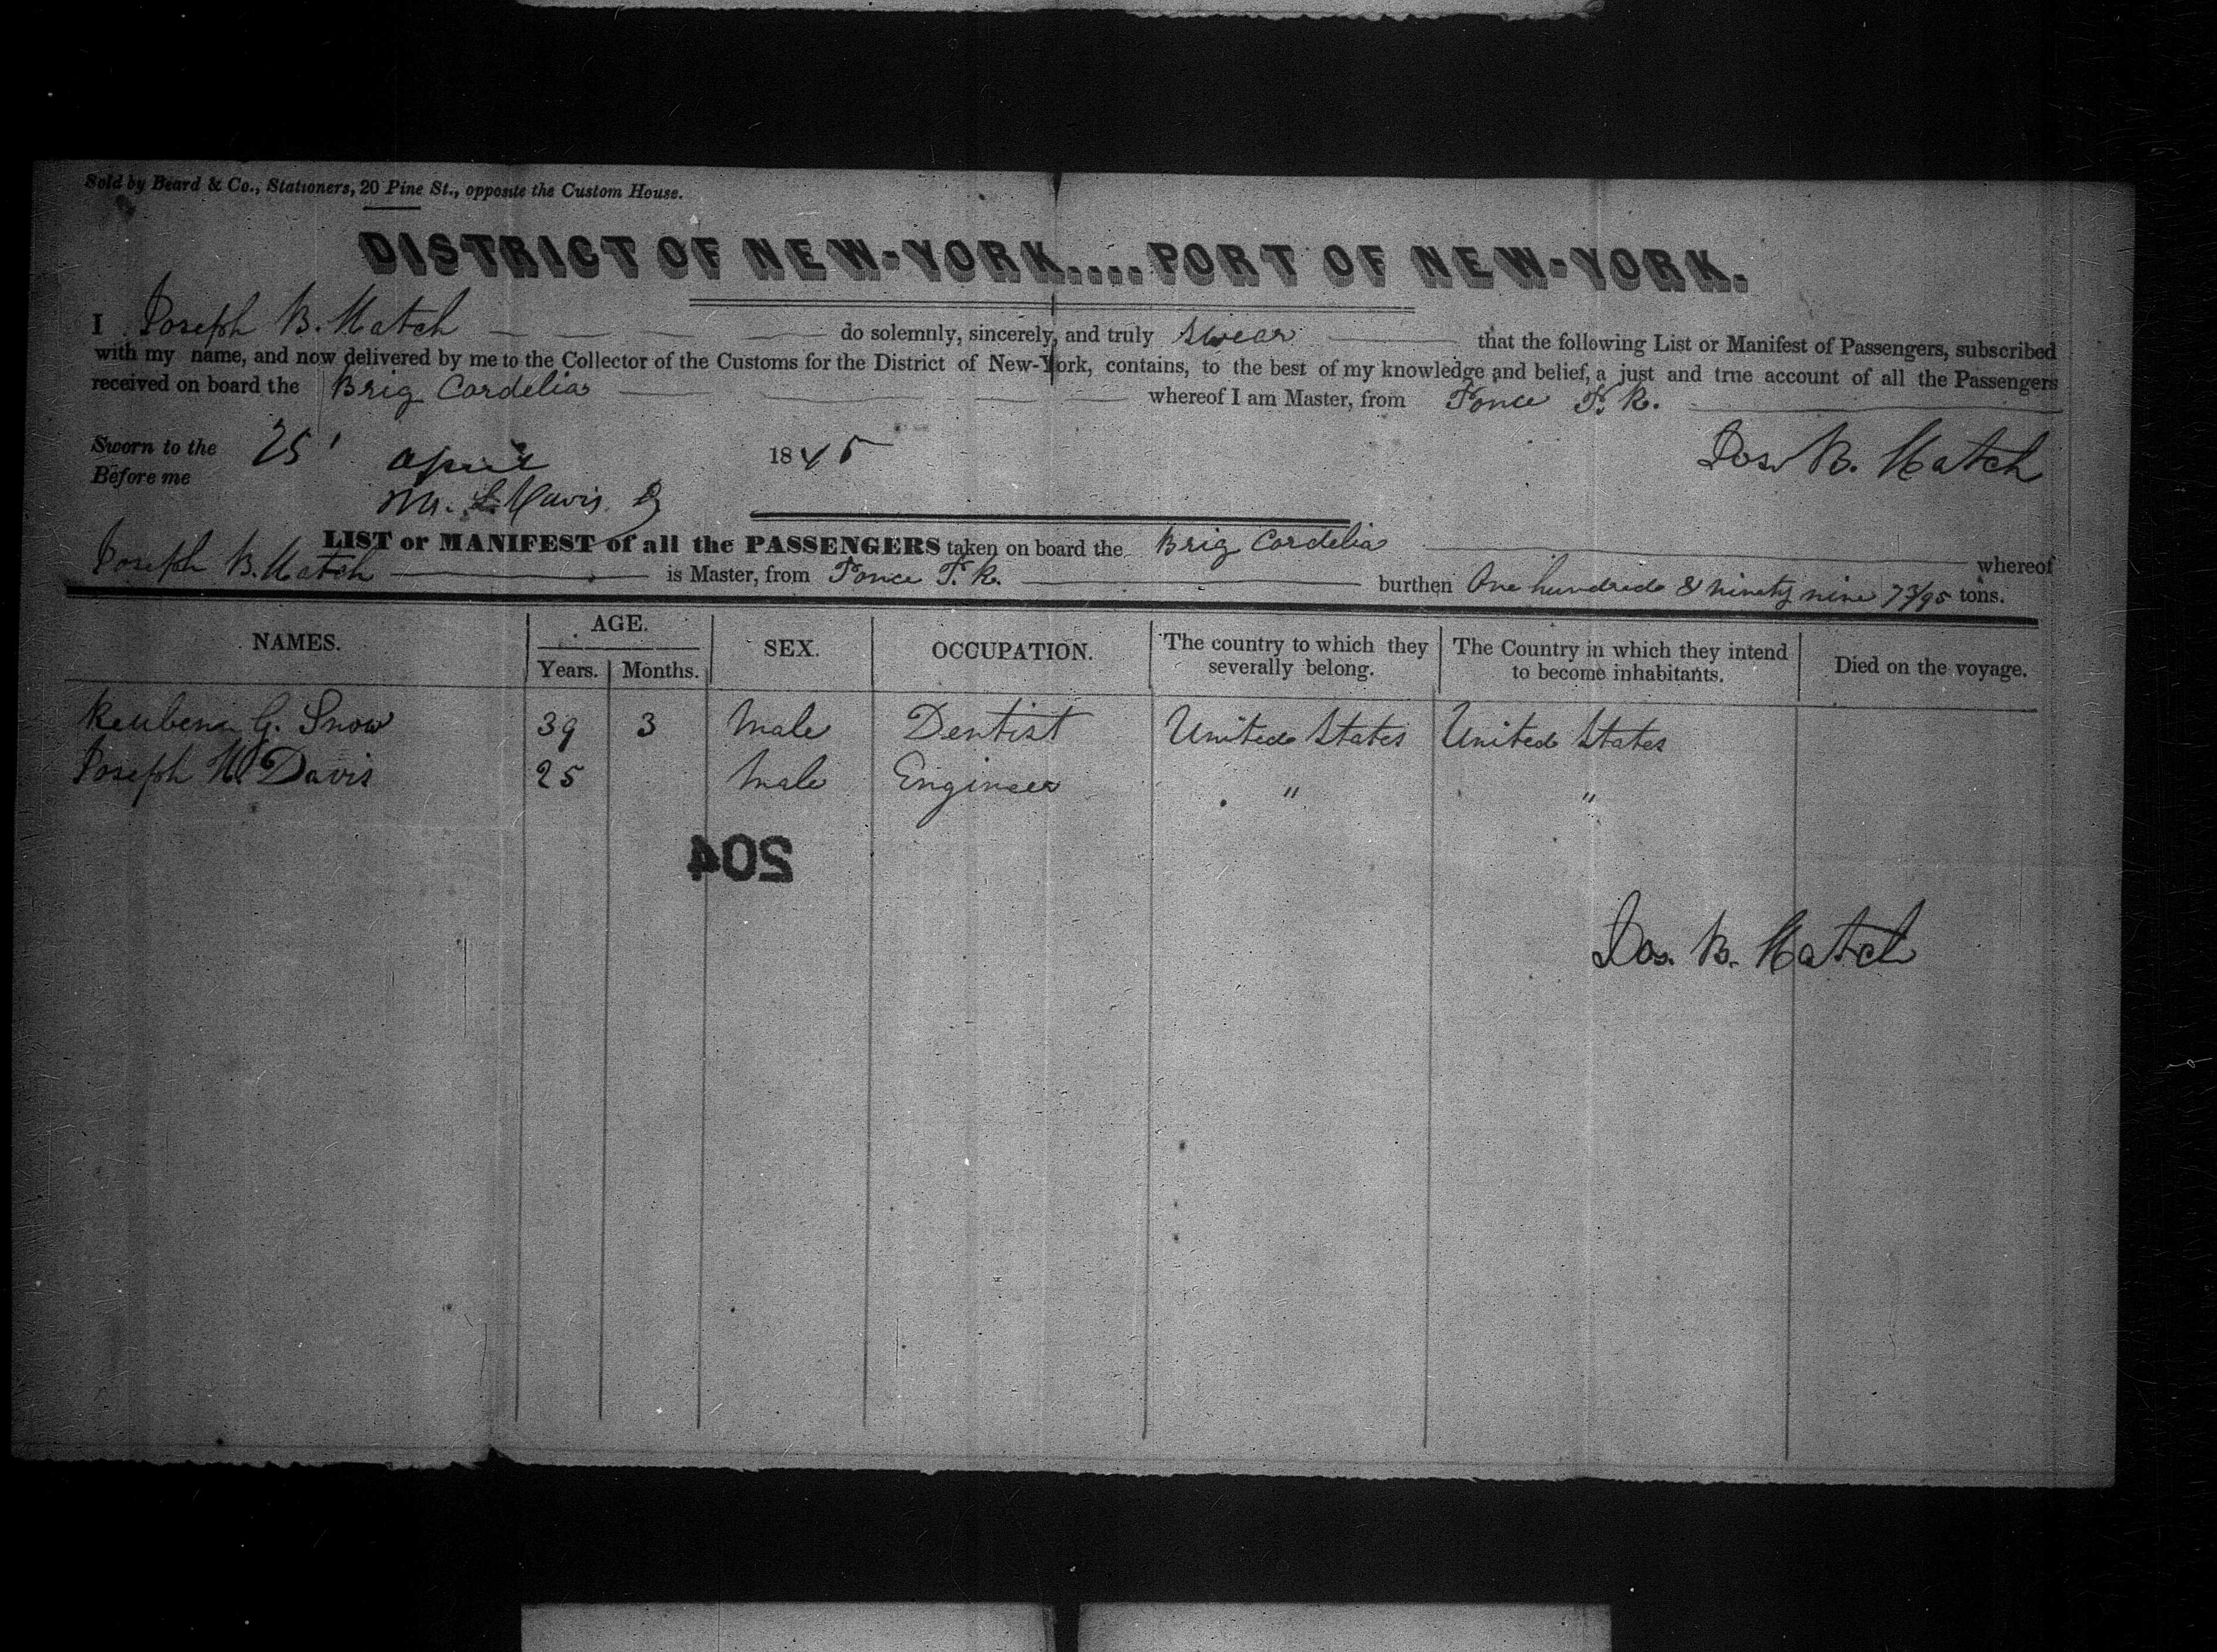 Sold by Beard & Co., Stationers, 20 Pine St., opposite the Custom House.
DISTRICT OF NEW-YORK....PORT OF NEW-YORK.
I Joseph B. Hatch do solemnly, sincerely, and truly swear that the following List or Manifest of Passengers, subscribed
with my name, and now delivered by me to the Collector of the Customs for the District of New-York, contains, to the best of my knowledge and belief, a just and true account of all the Passengers
received on board the Brig Cordelia whereof I am Master, from Ponce P. R.
Sworn to the 25' April 1845 Jos. B. Hatch
Before me
LIST or MANIFEST of all the PASSENGERS taken on board the Brig Cordelia whereof
Joseph B. Hatch is Master, from Ponce P. R. burthen One hundred & ninety nine 73/95 tons.
NAMES. AGE. SEX. OCCUPATION. The country to which they severally belong. The Country in which they intend to become inhabitants. Died on the voyage.
Years. Months.
Reuben G. Snow 39 3 Male Dentist United States United States
Joseph W. Davis 25 Male Engineer " "
204
Jos. B. Hatch